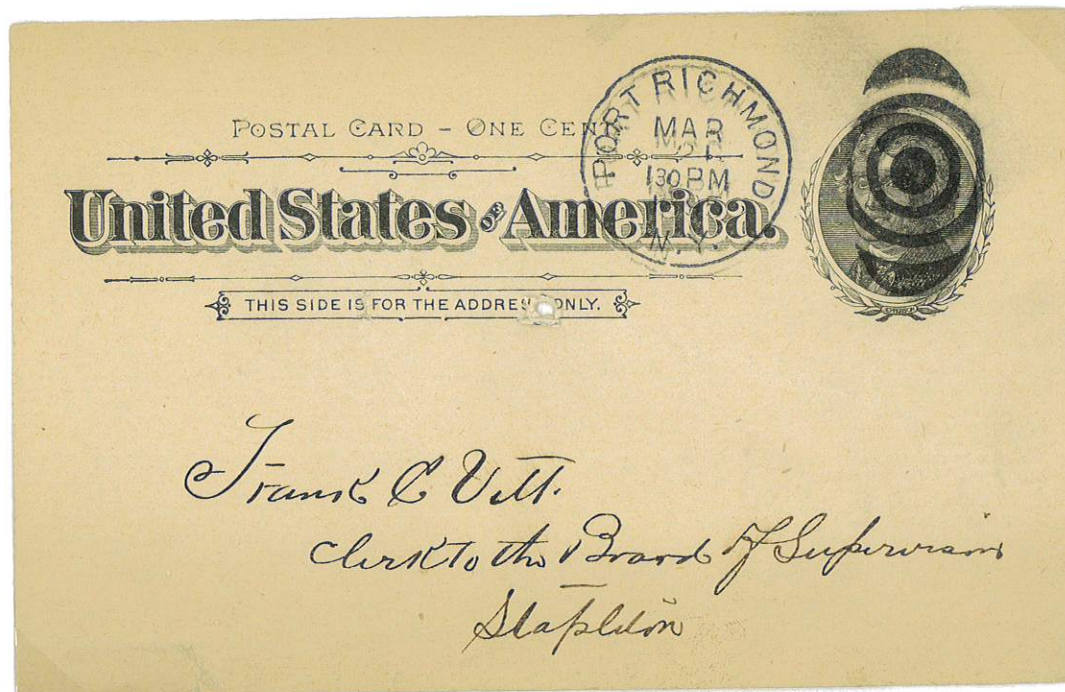 POSTAL CARD - ONE CENT
United States of America.
THIS SIDE IS FOR THE ADDRESS ONLY.
PORT RICHMOND
MAR
130 PM
N.Y.
Frank C Vitt.
Clerk to the Board of Supervisors
Stapleton